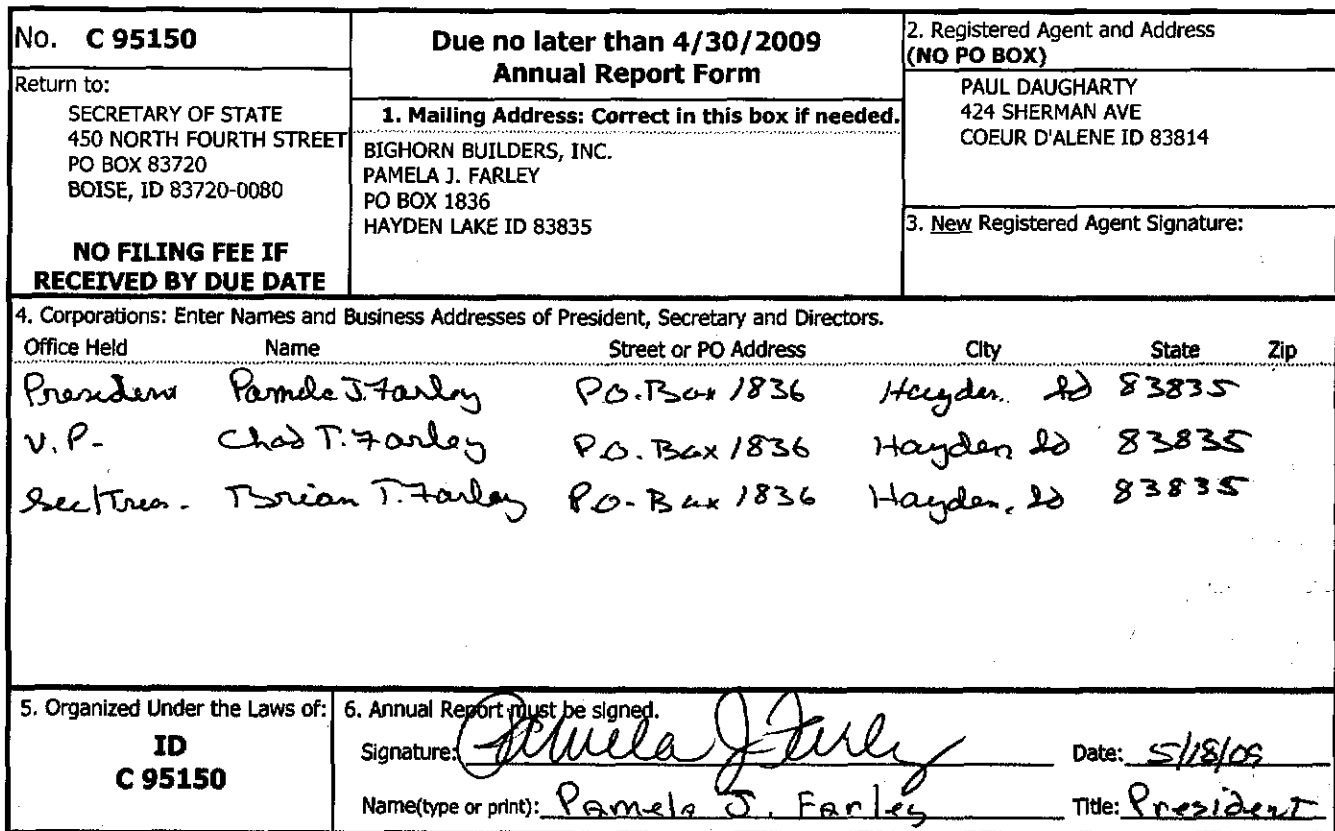 No. C 95150
Return to:
SECRETARY OF STATE
450 NORTH FOURTH STREET
PO BOX 83720
BOISE, ID 83720-0080
NO FILING FEE IF
RECEIVED BY DUE DATE
Due no later than 4/30/2009
Annual Report Form
1. Mailing Address: Correct in this box if needed.
BIGHORN BUILDERS, INC.
PAMELA J. FARLEY
PO BOX 1836
HAYDEN LAKE ID 83835
2. Registered Agent and Address
(NO PO BOX)
PAUL DAUGHARTY
424 SHERMAN AVE
COEUR D'ALENE ID 83814
3. New Registered Agent Signature:
4. Corporations: Enter Names and Business Addresses of President, Secretary and Directors.
Office Held Name Street or PO Address City State Zip
President Pamela J. Farley P.O. Box 1836 Hayden. Id 83835
V.P. Chad T. Farley P.O. Box 1836 Hayden Id 83835
Sec/Treas. Brian T. Farley P.O. Box 1836 Hayden, Id 83835
5. Organized Under the Laws of:
ID
C 95150
6. Annual Report must be signed.
Signature: Pamela J Farley Date: 5/18/09
Name(type or print): Pamela J. Farley Title: President